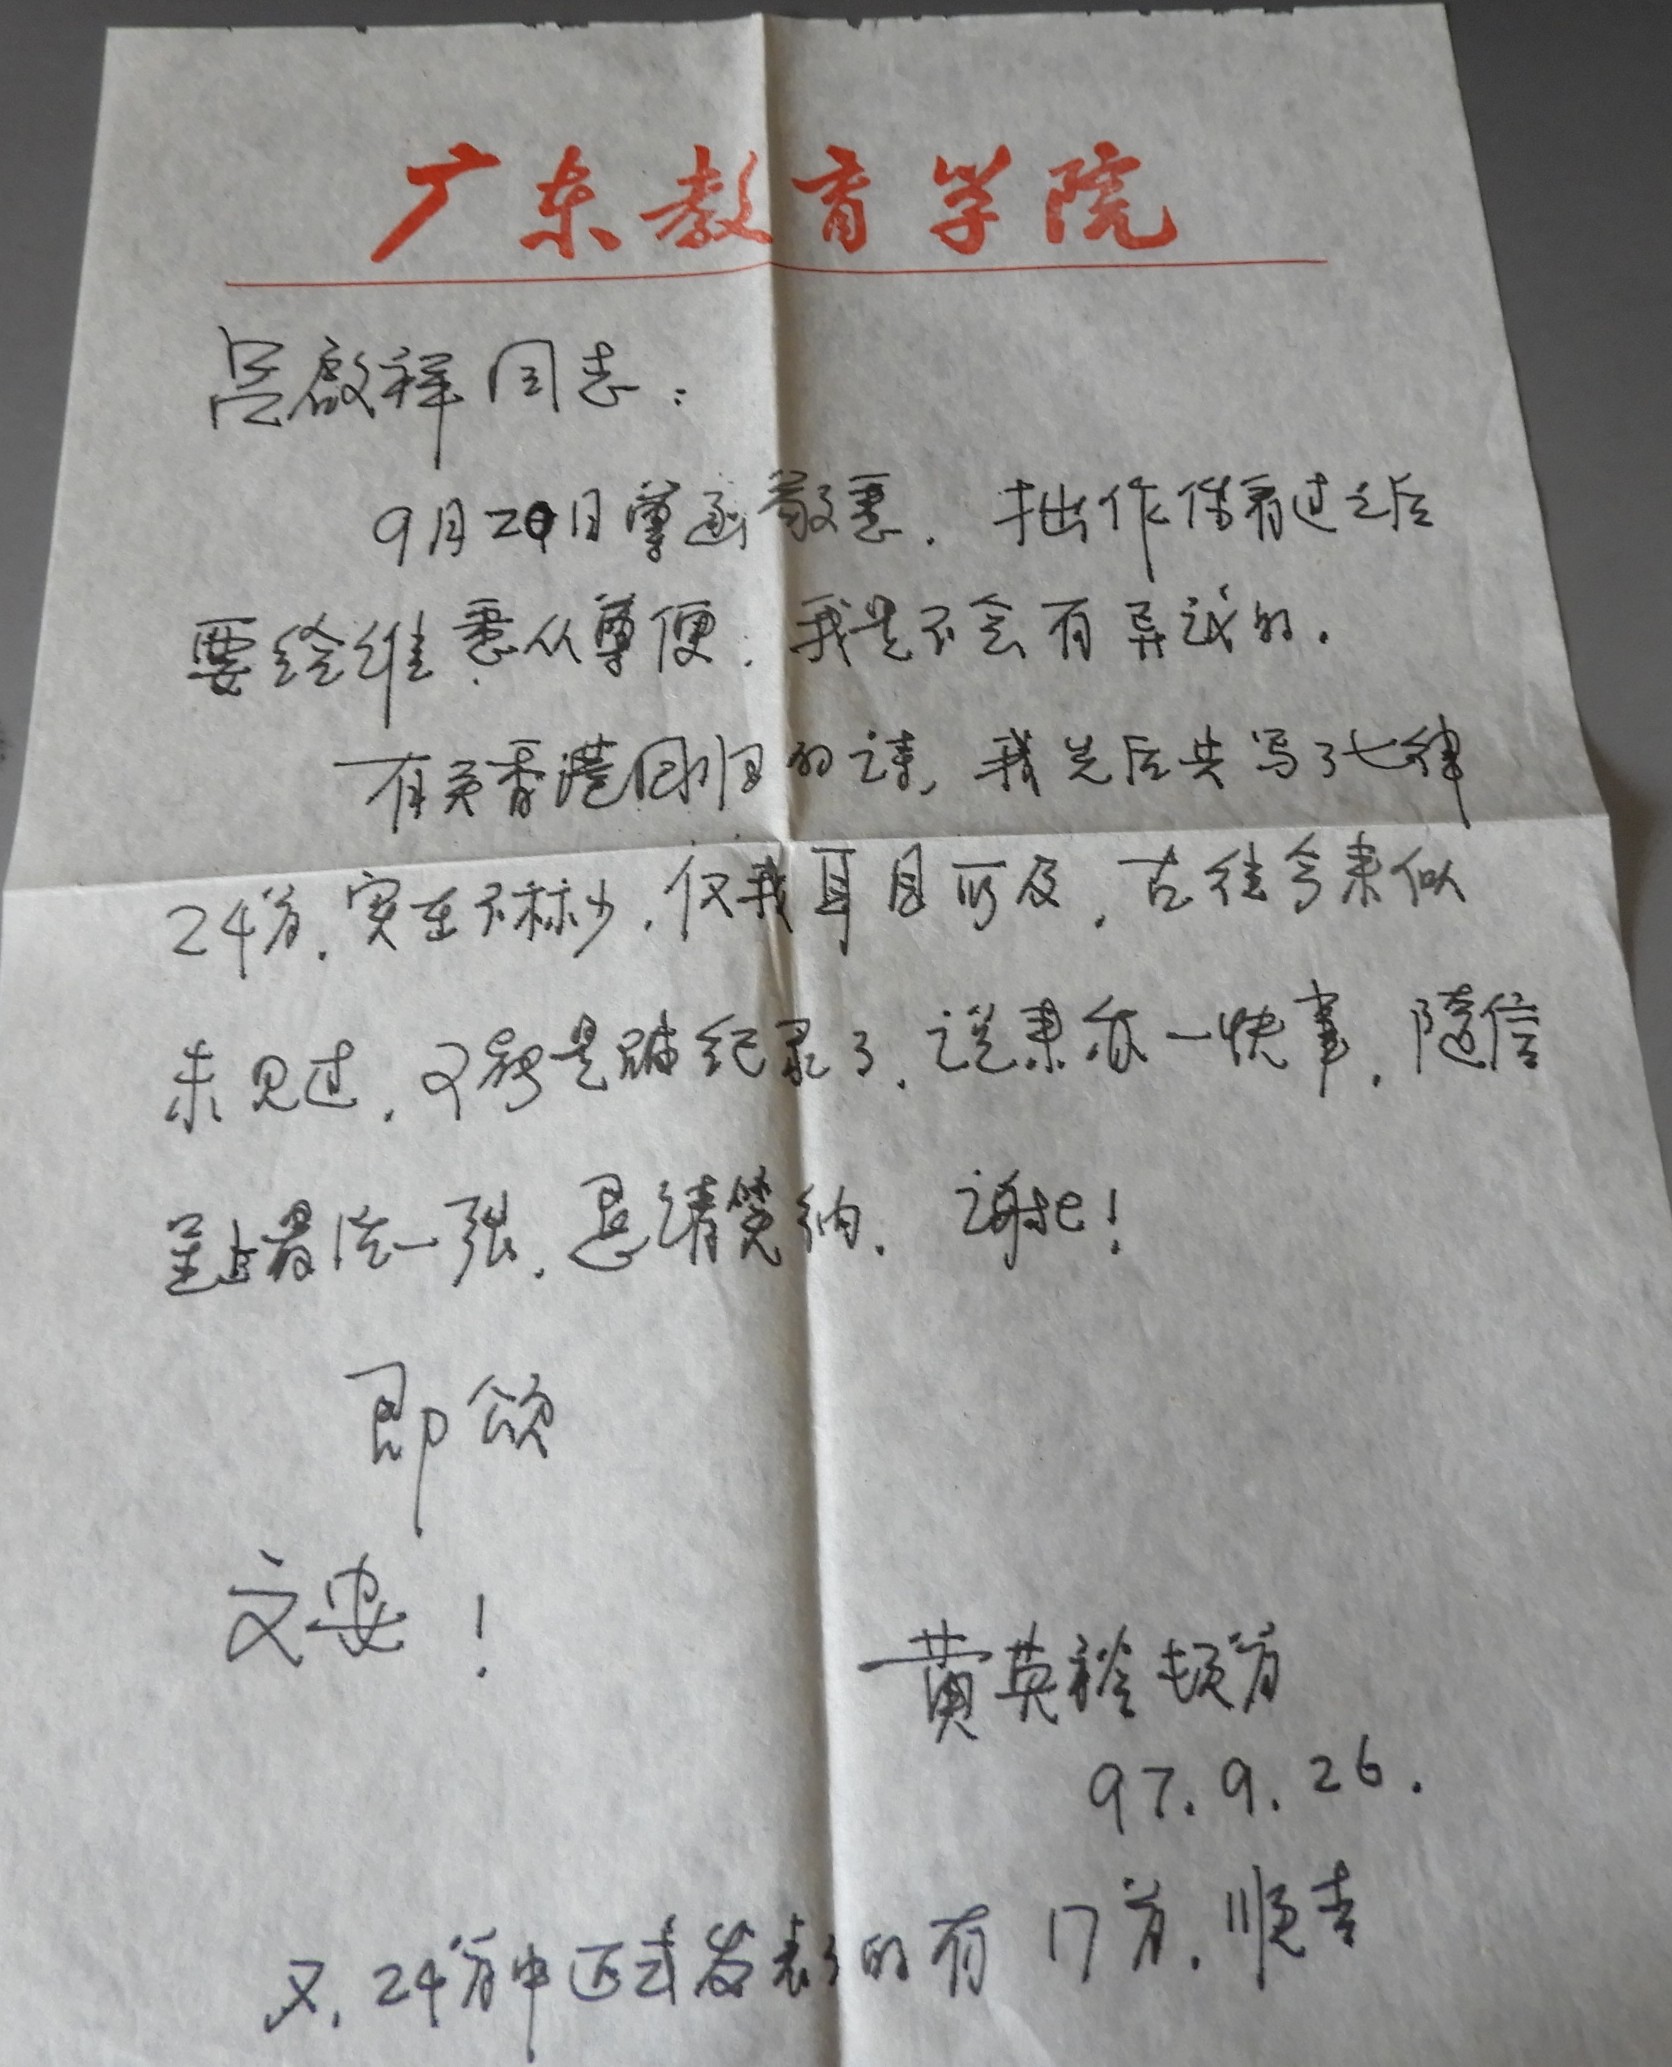 广东教育学院
吕啟祥同志：
9月20日尊函敬悉．拙作传看过之后
要给谁悉从尊便．我是不会有异议的．
有关香港回归的诗，我先后共写了七律
24首．实在不算少．仅我耳目所及．古往今来似
未见过．又算是破纪录了．说来亦一快事．随信
呈上最后一张．恳请笑纳．谢谢！
即颂
文安！
黄英 顿首
97.9.26.
又．24首中正式发表了的有17首．顺告